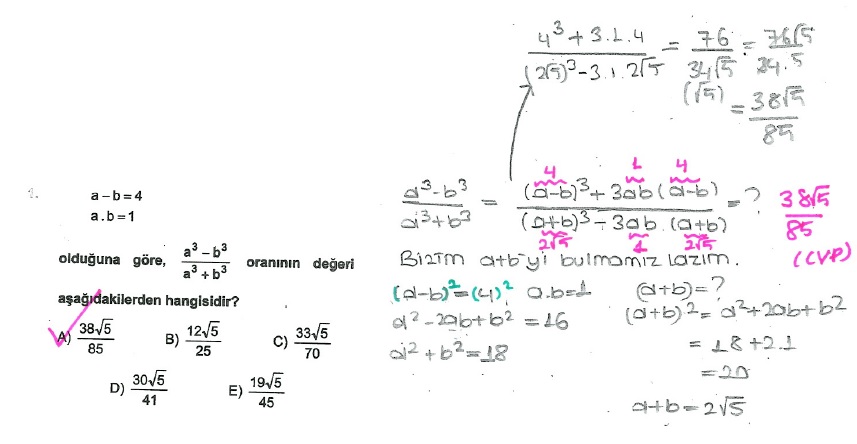 4³ + 3.1.4 / (2√5)³ - 3.1.2√5 = 76 / 34√5 = 76√5 / 34.5
(√5)
= 38√5 / 85
1.
a – b = 4
a . b = 1
olduğuna göre, a³ – b³ / a³ + b³ oranının değeri
aşağıdakilerden hangisidir?
A) 38√5 / 85 B) 12√5 / 25 C) 33√5 / 70
D) 30√5 / 41 E) 19√5 / 45
4 1 4
a³-b³ / a³+b³ = (a-b)³ + 3ab (a-b) / (a+b)³ - 3ab . (a+b) = ? 38√5 / 85
2√5 1 2√5
(CVP)
Bizim a+b'yi bulmamız lazım.
(a-b)² = (4)² a.b=1
a² - 2ab + b² = 16
a² + b² = 18
(a+b) = ?
(a+b)² = a² + 2ab + b²
= 18 + 2.1
= 20
a+b = 2√5